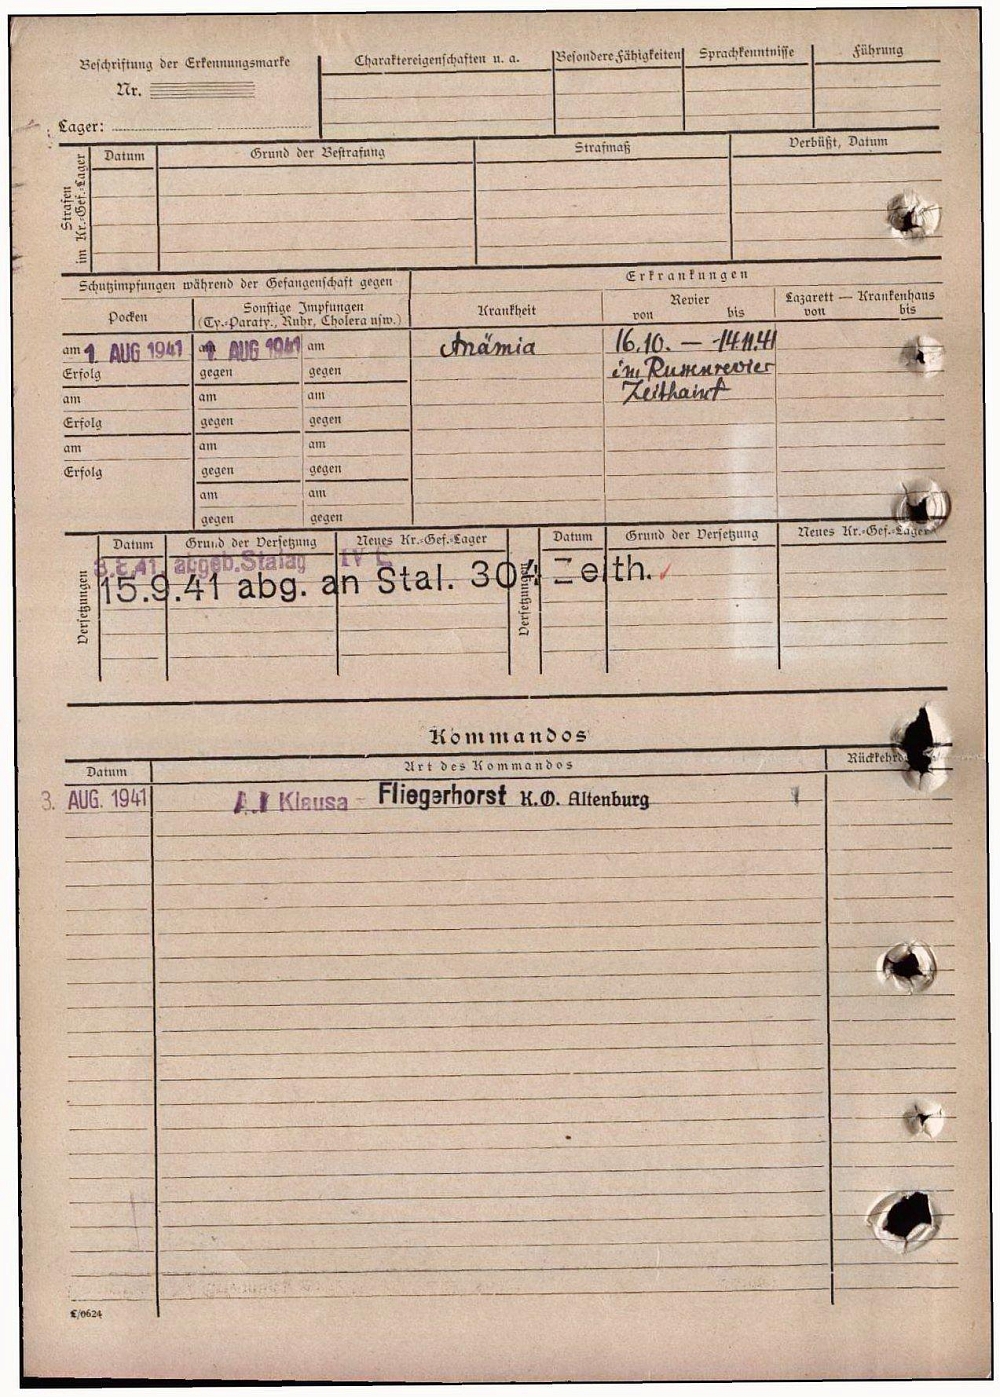 Beschriftung der Erkennungsmarke
Nr.
Lager:
Charaktereigenschaften u. a.
Besondere Fähigkeiten
Sprachkenntnisse
Führung
Strafen im Kr.-Gef.-Lager
Datum
Grund der Bestrafung
Strafmaß
Verbüßt, Datum
Schutzimpfungen während der Gefangenschaft gegen
Erkrankungen
Pocken
Sonstige Impfungen
(Ty.-Paraty., Ruhr, Cholera usw.)
Krankheit
Revier
von bis
Lazarett — Krankenhaus
von bis
am 1. AUG 1941 am AUG 1941 am Anämia 16.10. — 14.11.41
Erfolg gegen gegen im Russenrevier
am am am Zeithain
Erfolg gegen gegen
am am am
Erfolg gegen gegen
am am
gegen gegen
Versetzungen
Datum Grund der Versetzung Neues Kr.-Gef.-Lager
Versetzungen
Datum Grund der Versetzung Neues Kr.-Gef.-Lager
abgeb. Stalag IV
15.9.41 abg. an Stal. 304 Zeith.
Kommandos
Datum Art des Kommandos
3. AUG. 1941 Klausa Fliegerhorst K.O. Altenburg